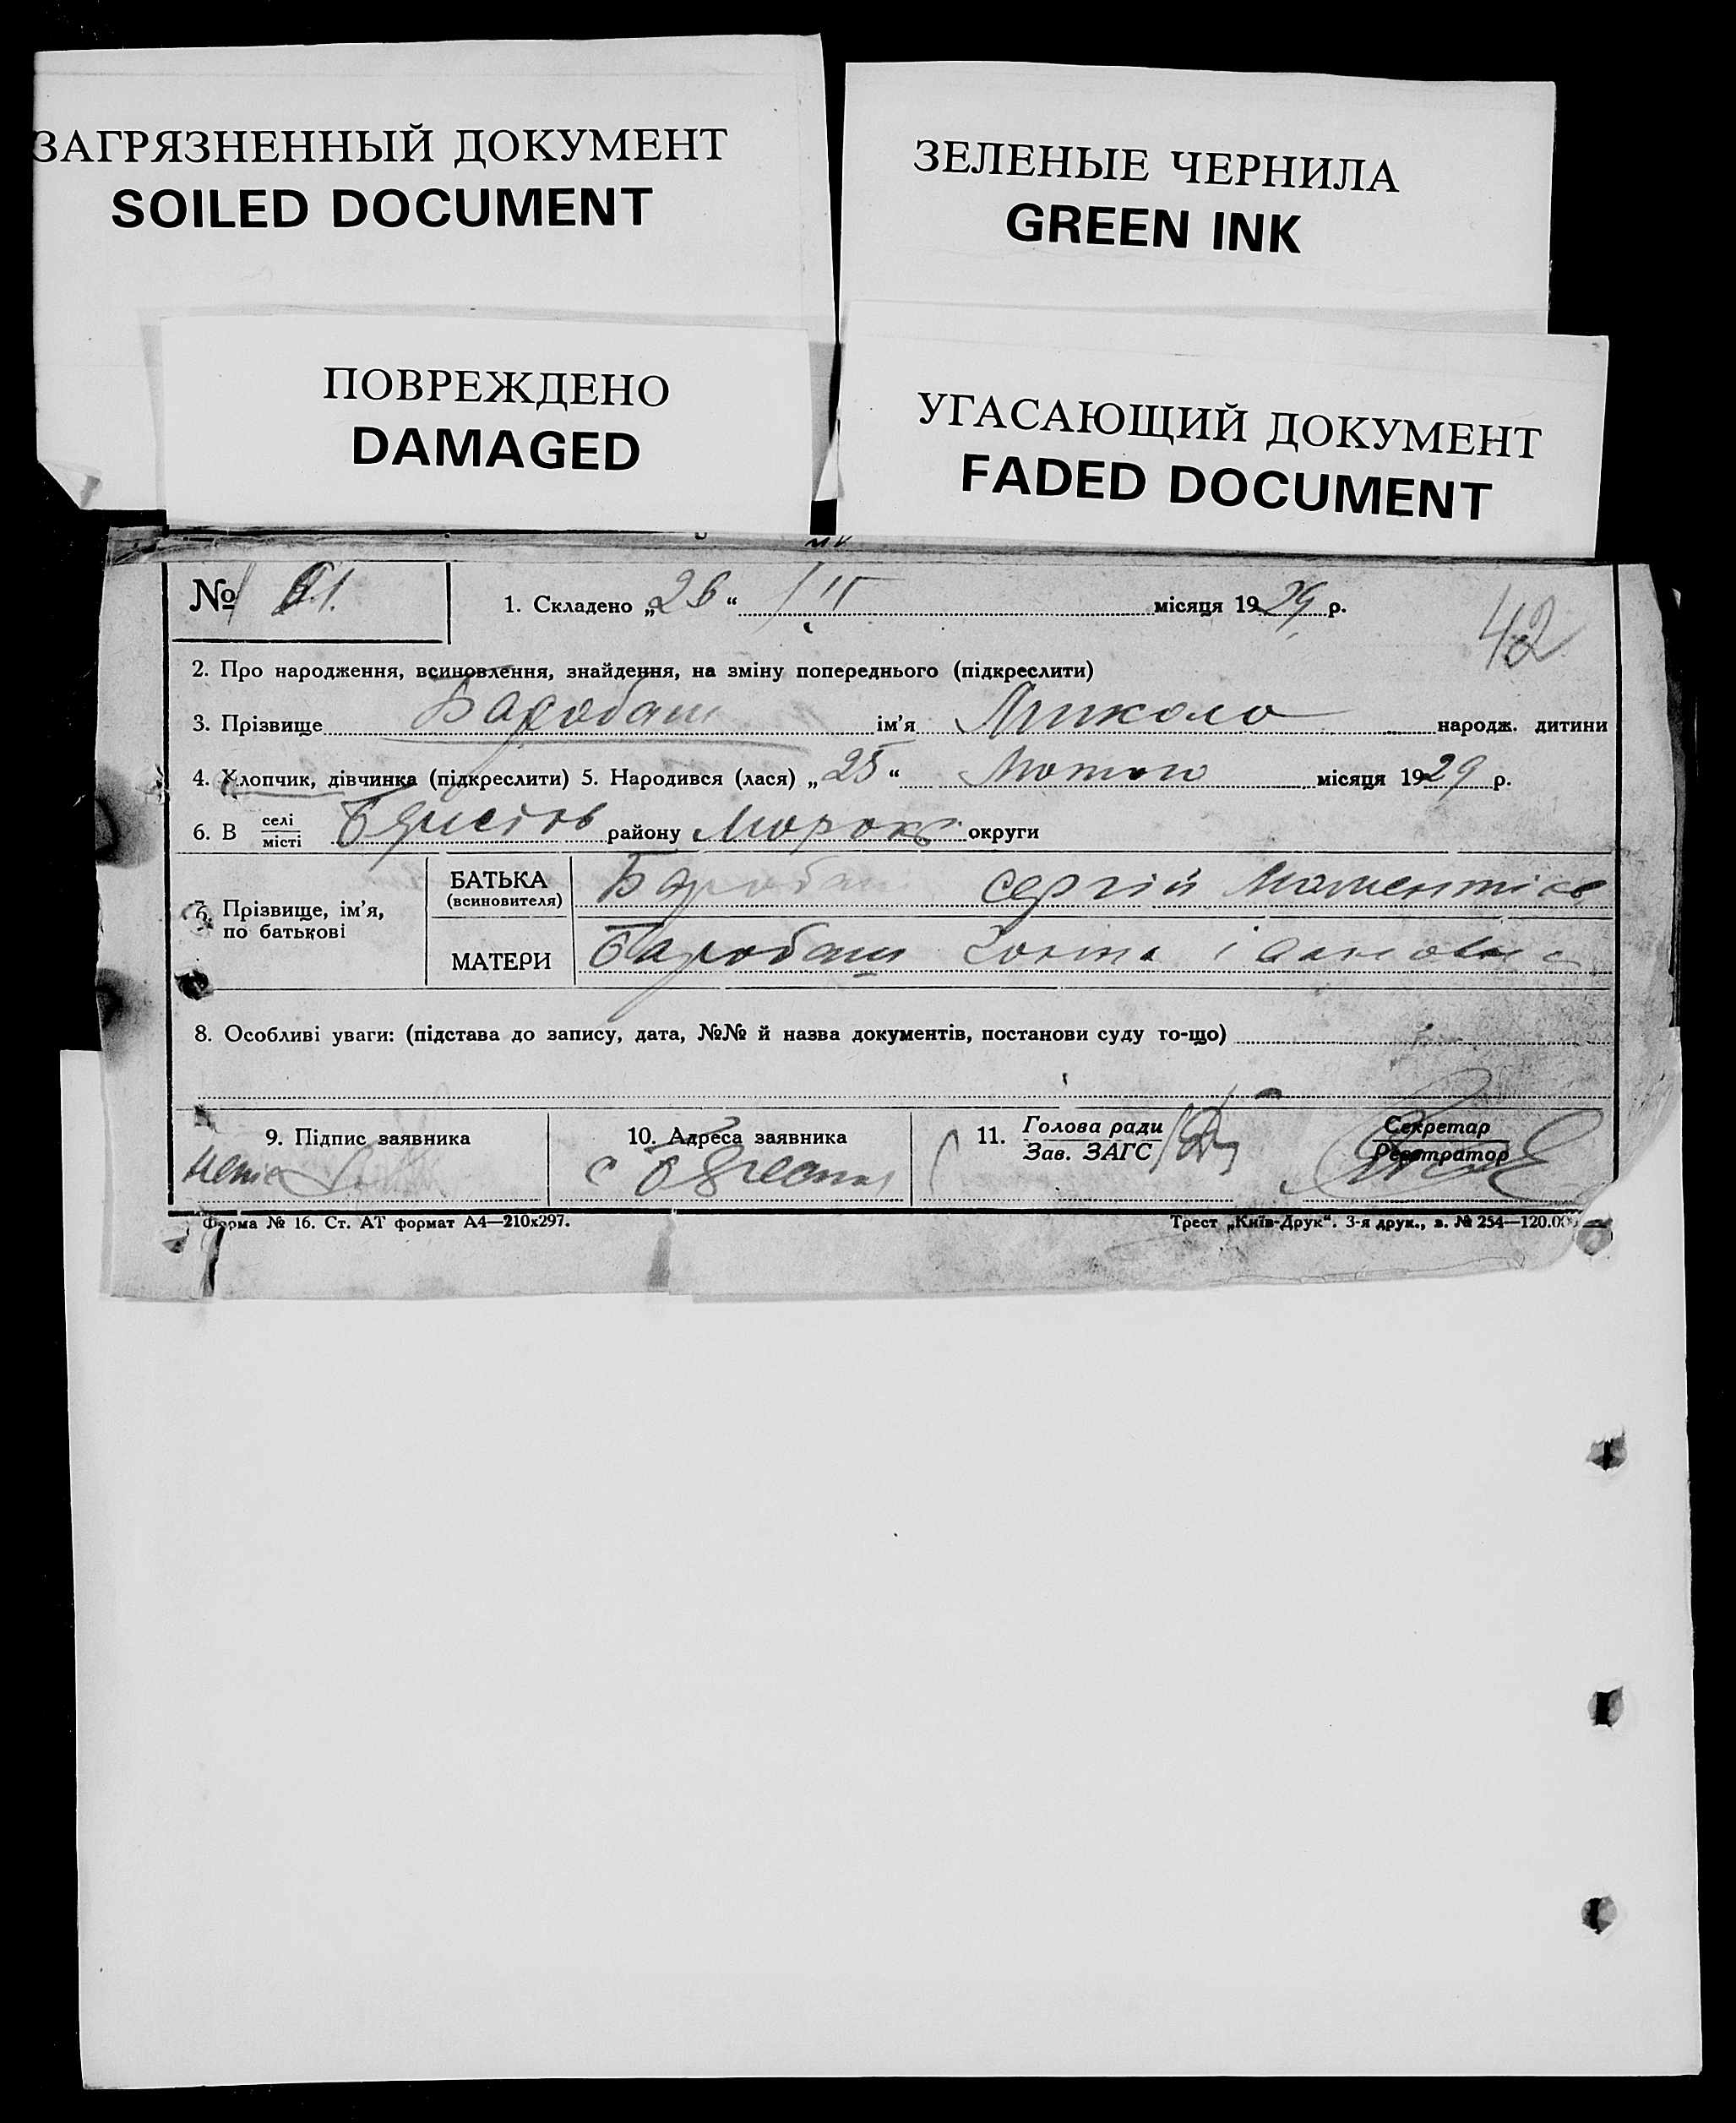 ЗАГРЯЗНЕННЫЙ ДОКУМЕНТ
SOILED DOCUMENT
ЗЕЛЕНЫЕ ЧЕРНИЛА
GREEN INK
ПОВРЕЖДЕНО
DAMAGED
УГАСАЮЩИЙ ДОКУМЕНТ
FADED DOCUMENT
№
1. Складено „26“ / II місяця 1929 р.
42
2. Про народження, всиновлення, знайдення, на зміну попереднього (підкреслити)
3. Прізвище Барабаш ім’я Микола народж. дитини
4. Хлопчик, дівчинка (підкреслити) 5. Народився (лася) „25“ Лютого місяця 1929 р.
6. В селі місті району округи
7. Прізвище, ім’я, по батькові
БАТЬКА (всиновителя) Барабаш Сергій
МАТЕРИ Барабаш Івановна
8. Особливі уваги: (підстава до запису, дата, №№ й назва документів, постанови суду то-що)
9. Підпис заявника
10. Адреса заявника
с
11. Голова ради
Зав. ЗАГС
Секретар
Реєстратор
Форма № 16. Ст. АТ формат А4—210х297.
Трест „Київ-Друк“. 3-я друк., з. № 254—120.000